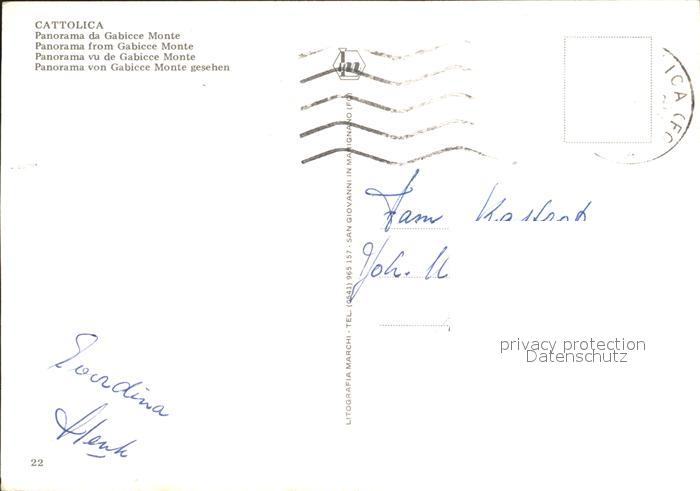 CATTOLICA
Panorama da Gabicce Monte
Panorama from Gabicce Monte
Panorama vu de Gabicce Monte
Panorama von Gabicce Monte gesehen
ICA (FO
LITOGRAFIA MARCHI - TEL. (0541) 965 157 - SAN GIOVANNI IN MARIGNANO (FO)
Fam
Joh.
privacy protection
Datenschutz
Henk
22